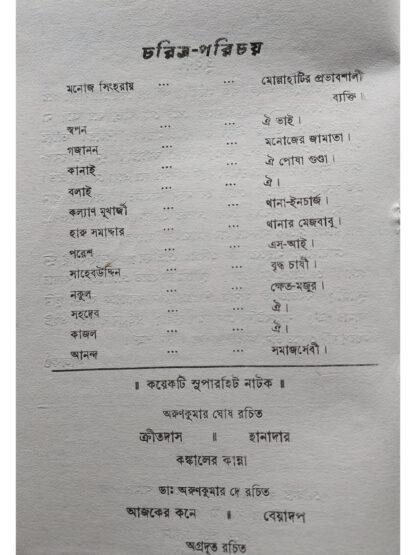 চরিত্র-পরিচয়
মনোজ সিংহরায় ... ... মোল্লাহাটির প্রভাবশালী
ব্যক্তি ॥
স্বপন ... ... ঐ ভাই।
গজানন ... ... মনোজের জামাতা।
কানাই ... ... ঐ পোষা গুণ্ডা।
বলাই ... ... ঐ।
কল্যাণ মুখার্জী ... ... থানা-ইনচার্জ।
হারু সমাদ্দার ... ... থানার মেজবাবু।
পরেশ ... ... এস-আই।
সাহেবউদ্দিন ... ... বৃদ্ধ চাষী।
নকুল ... ... ক্ষেত-মজুর।
সহদেব ... ... ঐ।
কাজল ... ... ঐ।
আনন্দ ... ... সমাজসেবী।
॥ কয়েকটি সুপারহিট নাটক ॥
অরুণকুমার ঘোষ রচিত
ক্রীতদাস ॥ হানাদার
কঙ্কালের কান্না
ডাঃ অরুণকুমার দে রচিত
আজকের কনে ॥ বেয়াদপ
অগ্রদূত রচিত